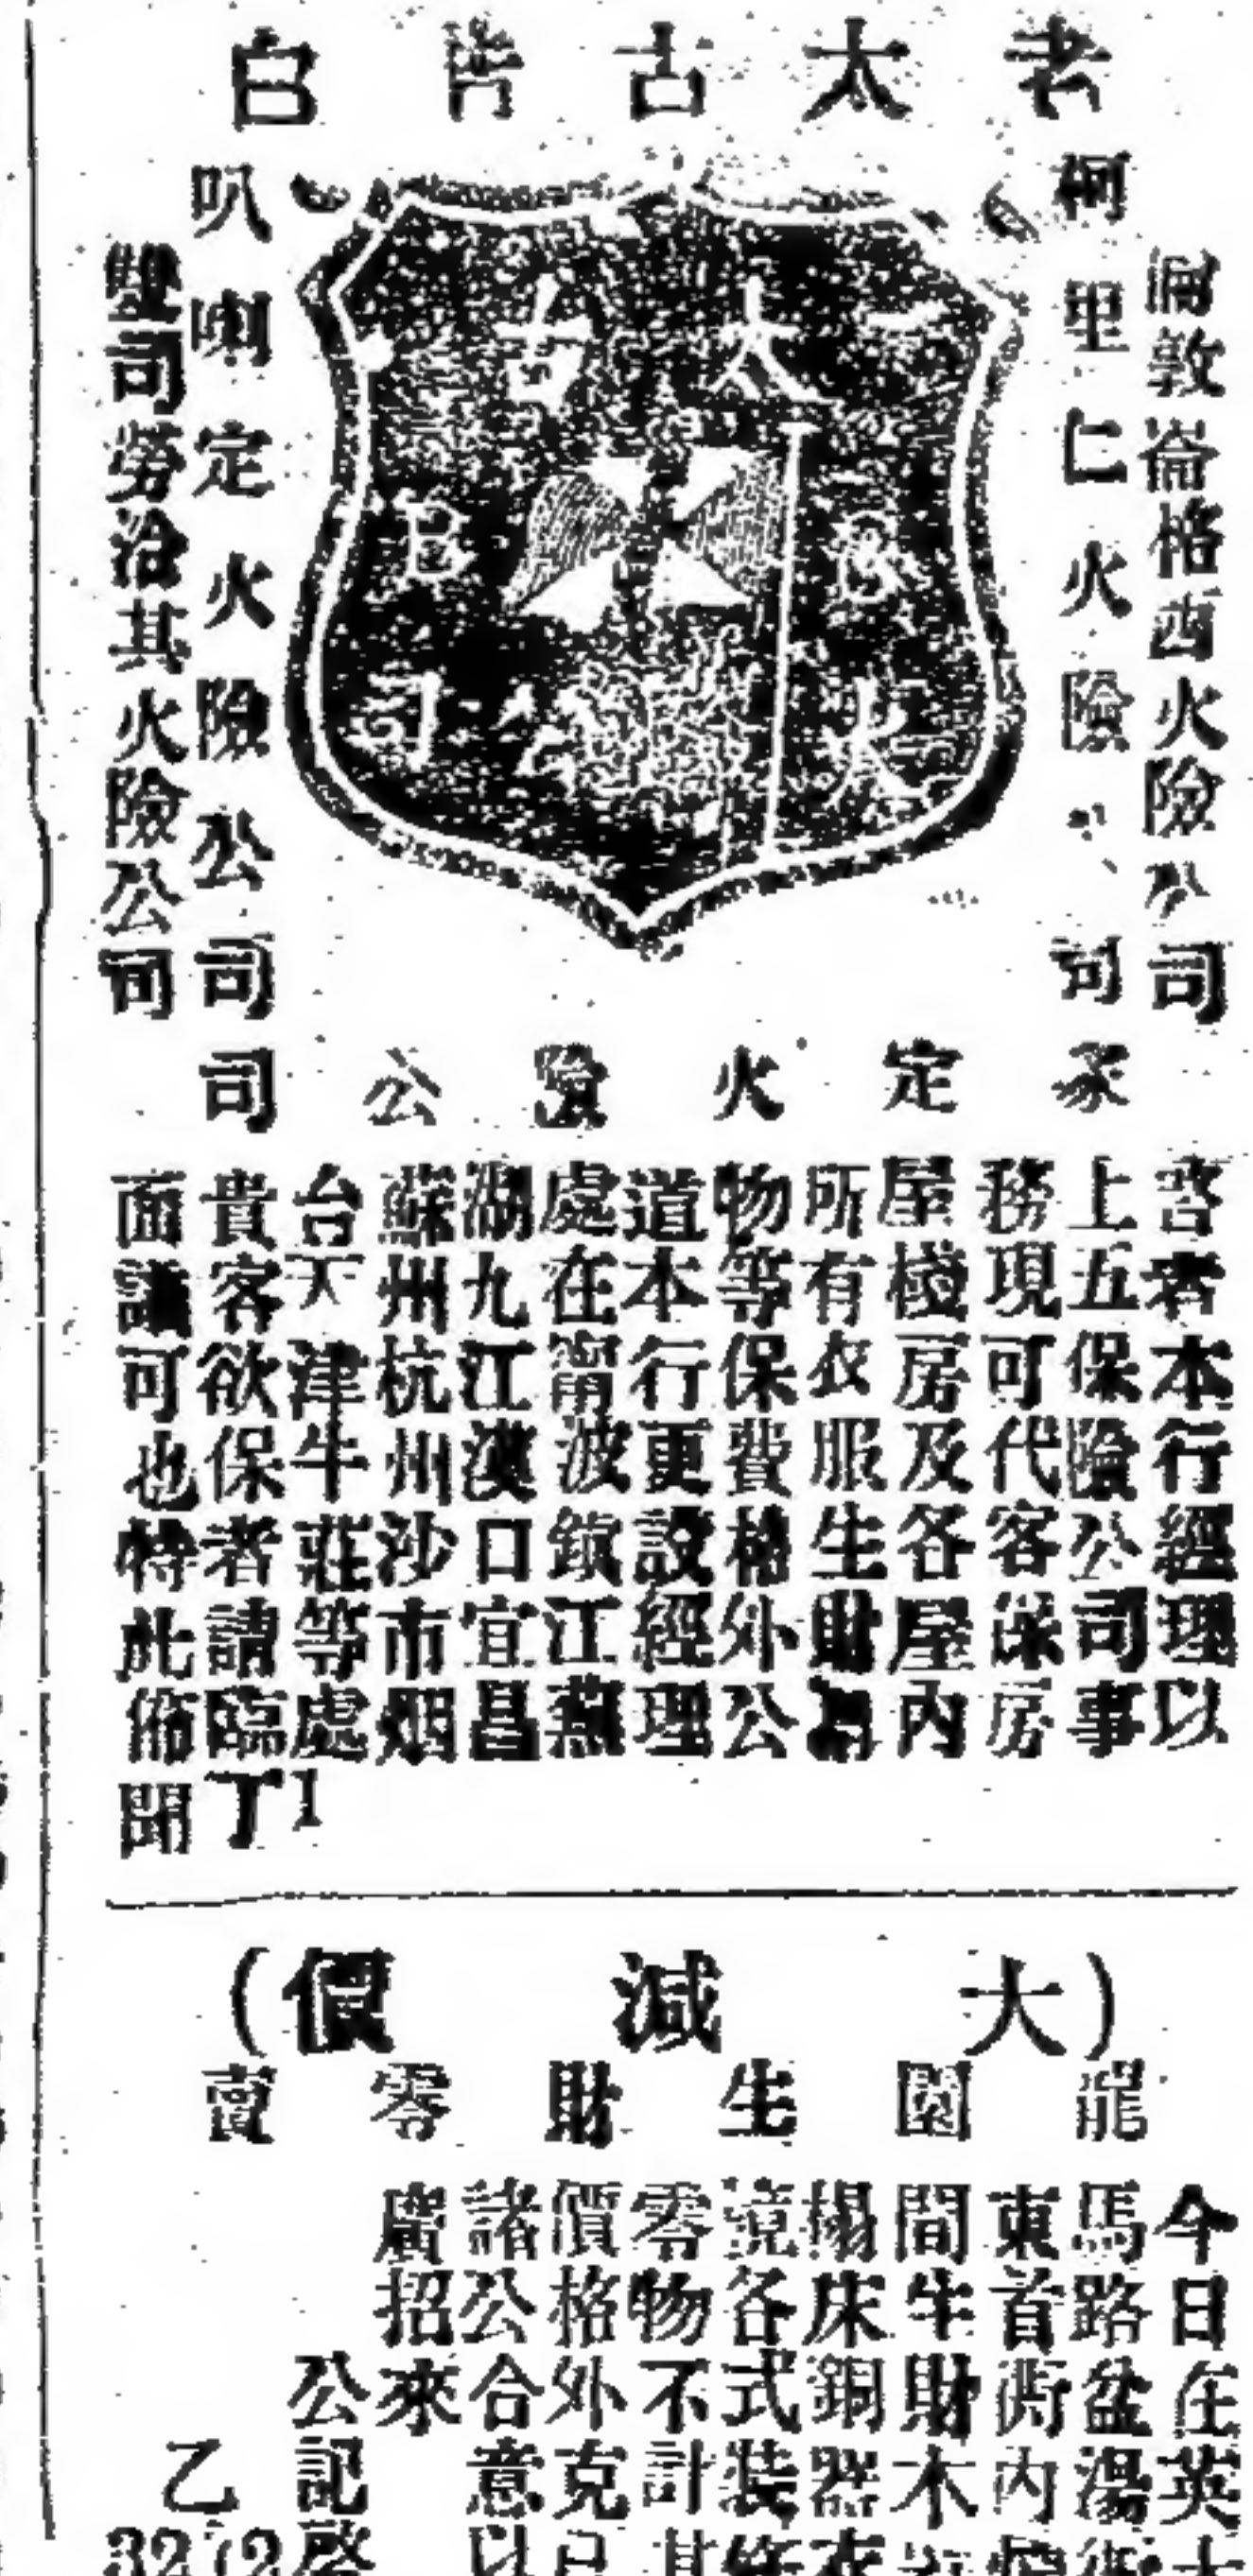 老太古告白
倫敦崙格西火險公司
柯里仁火險公司
太古
B
S
火
公司
叭喇定火險公司
雙司勞洽其火險公司
家定火險公司
啓者本行經理以
上五保險公司事
務現可代客保房
屋棧房及各屋內
所有衣服生財為
物等保費格外公
道本行更設經理
處在甯波鎮江蕪
湖九江漢口宜昌
蘇州杭州沙市烟
台天津牛莊等處
貴客欲保者請臨
面議可也特此佈聞
(大減價)
龍園生財零賣
今日在英
馬路盆湯
東首衖內
間生財木
榻床銅器
鏡各式裝
零物不計其
價格外克己
諸公合意以
廣招來
公記啓
乙